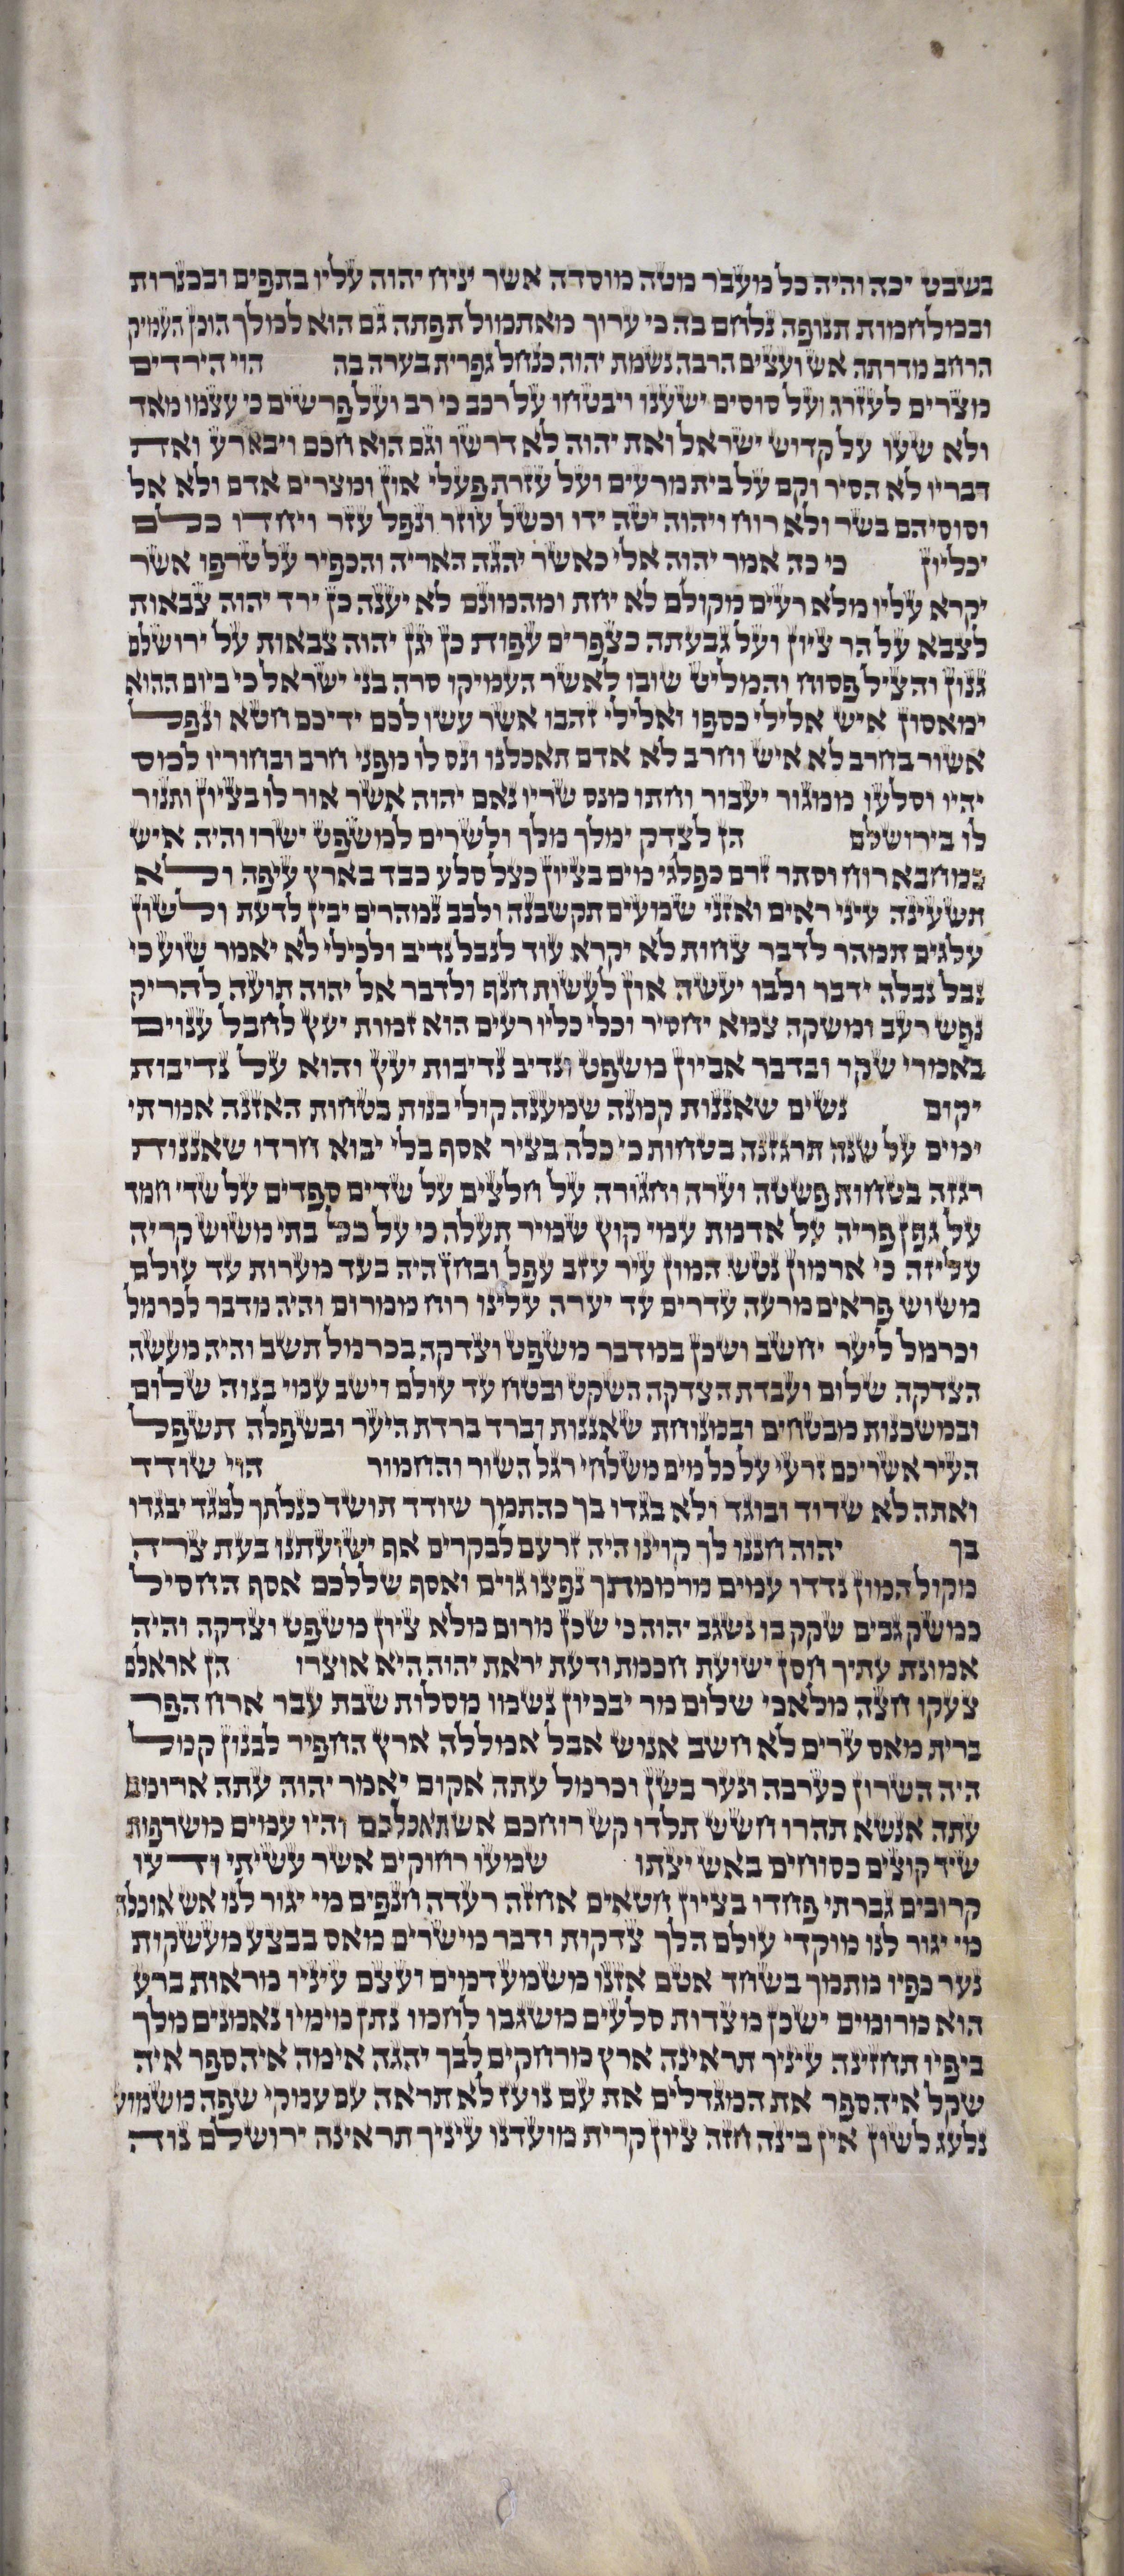 בשבט יכה והיה כל מעבר מטה מוסדה אשר יניח יהוה עליו בתפים ובכנרות
ובמלחמות תנופה נלחם בה כי ערוך מאתמול תפתה גם הוא למלך הוכן העמיק
הרחב מדרתה אש ועצים הרבה נשמת יהוה כנחל גפרית בערה בה הוי הירדים
מצרים לעזרה ועל סוסים ישענו ויבטחו על רכב כי רב ועל פרשים כי עצמו מאד
ולא שעו על קדוש ישראל ואת יהוה לא דרשו וגם הוא חכם ויבא רע ואת
דבריו לא הסיר וקם על בית מרעים ועל עזרת פעלי און ומצרים אדם ולא אל
וסוסיהם בשר ולא רוח ויהוה יטה ידו וכשל עוזר ונפל עזר ויחדו כלם
יכליון כי כה אמר יהוה אלי כאשר יהגה האריה והכפיר על טרפו אשר
יקרא עליו מלא רעים מקולם לא יחת ומהמונם לא יענה כן ירד יהוה צבאות
לצבא על הר ציון ועל גבעתה כצפרים עפות כן יגן יהוה צבאות על ירושלם
גנון והציל פסוח והמליט שובו לאשר העמיקו סרה בני ישראל כי ביום ההוא
ימאסון איש אלילי כספו ואלילי זהבו אשר עשו לכם ידיכם חטא ונפל
אשור בחרב לא איש וחרב לא אדם תאכלנו ונס לו מפני חרב ובחוריו למס
יהיו וסלעו ממגור יעבור וחתו מנס שריו נאם יהוה אשר אור לו בציון ותנור
לו בירושלם הן לצדק ימלך מלך ולשרים למשפט ישרו והיה איש
כמחבא רוח וסתר זרם כפלגי מים בציון כצל סלע כבד בארץ עיפה ולא
תשעינה עיני ראים ואזני שמעים תקשבנה ולבב נמהרים יבין לדעת ולשון
עלגים תמהר לדבר צחות לא יקרא עוד לנבל נדיב ולכילי לא יאמר שוע כי
נבל נבלה ידבר ולבו יעשה און לעשות חנף ולדבר אל יהוה תועה להריק
נפש רעב ומשקה צמא יחסיר וכלי כליו רעים הוא זמות יעץ לחבל ענוים
באמרי שקר ובדבר אביון משפט ונדיב נדיבות יעץ והוא על נדיבות
יקום נשים שאננות קמנה שמענה קולי בנות בטחות האזנה אמרתי
ימים על שנה תרגזנה בטחות כי כלה בציר אסף בלי יבוא חרדו שאננות
רגזה בטחות פשטה וערה וחגורה על חלצים על שדים ספדים על שדי חמד
על גפן פריה על אדמת עמי קוץ שמיר תעלה כי על כל בתי משוש קריה
עליזה כי ארמון נטש המון עיר עזב עפל ובחן היה בעד מערות עד עולם
משוש פראים מרעה עדרים עד יערה עלינו רוח ממרום והיה מדבר לכרמל
וכרמל ליער יחשב ושכן במדבר משפט וצדקה בכרמל תשב והיה מעשה
הצדקה שלום ועבדת הצדקה השקט ובטח עד עולם וישב עמי בנוה שלום
ובמשכנות מבטחים ובמנוחת שאננות וברד ברדת היער ובשפלה תשפל
העיר אשריכם זרעי על כל מים משלחי רגל השור והחמור הוי שודד
ואתה לא שדוד ובוגד ולא בגדו בך כהתמך שודד תושד כנלתך לבגד יבגדו
בך יהוה חננו לך קוינו היה זרעם לבקרים אף ישועתנו בעת צרה
מקול המון נדדו עמים מרממתך נפצו גוים ואסף שללכם אסף החסיל
כמשק גבים שקק בו נשגב יהוה כי שכן מרום מלא ציון משפט וצדקה והיה
אמונת עתיך חסן ישועת חכמת ודעת יראת יהוה היא אוצרו הן אראלם
צעקו חצה מלאכי שלום מר יבכיון נשמו מסלות שבת עבר ארח הפר
ברית מאס ערים לא חשב אנוש אבל אמללה ארץ החפיר לבנון קמל
היה השרון כערבה ונער בשן וכרמל עתה אקום יאמר יהוה עתה ארומם
עתה אנשא תהרו חשש תלדו קש רוחכם אש תאכלכם והיו עמים משרפות
שיד קוצים כסוחים באש יצתו שמעו רחוקים אשר עשיתי ודעו
קרובים גברתי פחדו בציון חטאים אחזה רעדה חנפים מי יגור לנו אש אוכלה
מי יגור לנו מוקדי עולם הלך צדקות ודבר מישרים מאס בבצע מעשקות
נער כפיו מתמך בשחד אטם אזנו משמע דמים ועצם עיניו מראות ברע
הוא מרומים ישכן מצדות סלעים משגבו לחמו נתן מימיו נאמנים מלך
ביפיו תחזינה עיניך תראינה ארץ מרחקים לבך יהגה אימה איה ספר איה
שקל איה ספר את המגדלים את עם נועז לא תראה עם עמקי שפה משמוע
נלעג לשון אין בינה חזה ציון קרית מועדנו עיניך תראינה ירושלם נוה